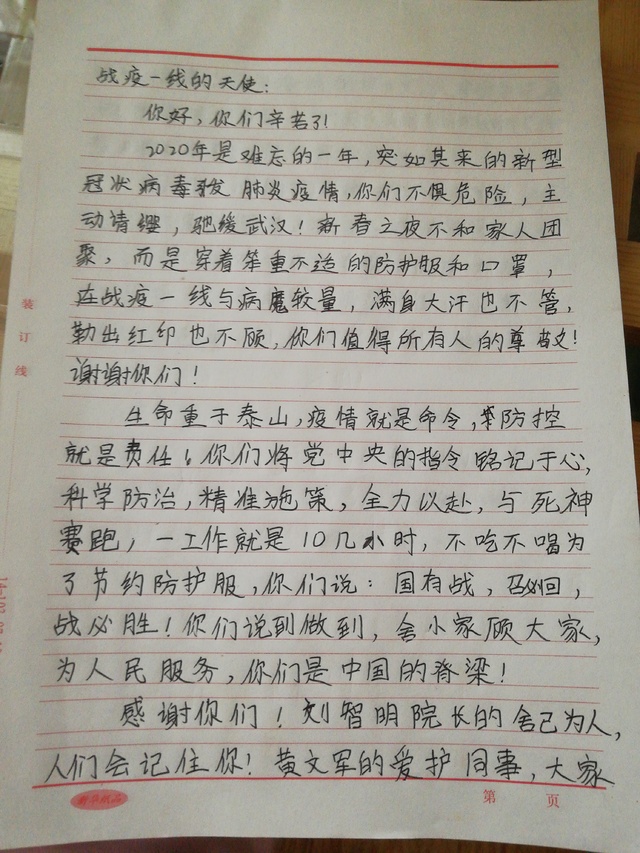 战疫一线的天使:
你好,你们辛苦了!
2020年是难忘的一年,突如其来的新型
冠状病毒引发肺炎疫情,你们不惧危险,主
动请缨,驰援武汉!新春之夜不和家人团
聚,而是穿着笨重不适的防护服和口罩,
在战疫一线与病魔较量,满身大汗也不管,
勒出红印也不顾,你们值得所有人的尊敬!
谢谢你们!
生命重于泰山,疫情就是命令,防控
就是责任!你们将党中央的指令铭记于心,
科学防治,精准施策,全力以赴,与死神
赛跑,一工作就是10几小时,不吃不喝为
了节约防护服,你们说:国有战,召必回,
战必胜!你们说到做到,舍小家顾大家,
为人民服务,你们是中国的脊梁!
感谢你们!刘智明院长的舍己为人,
人们会记住你!黄文军的爱护同事,大家
装订线
第 页